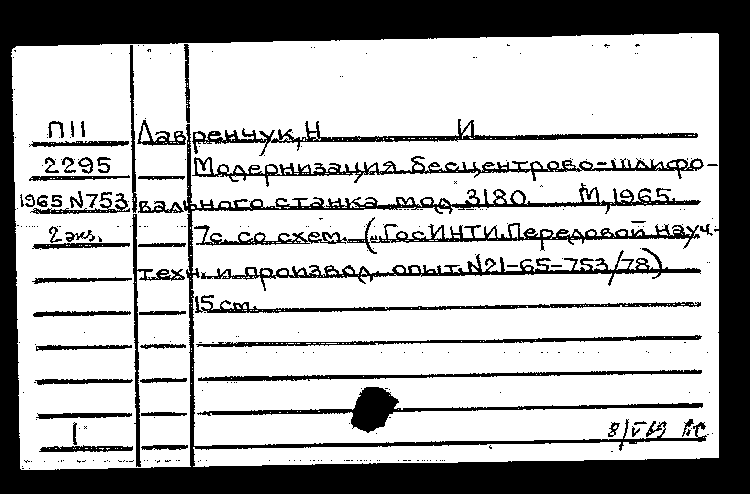 П11 Лавренчук, Н И
2295 Модернизация бесцентрово-шлифо-
1965 N753 вального станка мод 3180. М, 1965.
2 экз. 7с. со схем. („ГосИНТИ. Передовой науч.-
техн. и производ. опыт. N21-65-753/78).
15 cm.
1 8/V 69